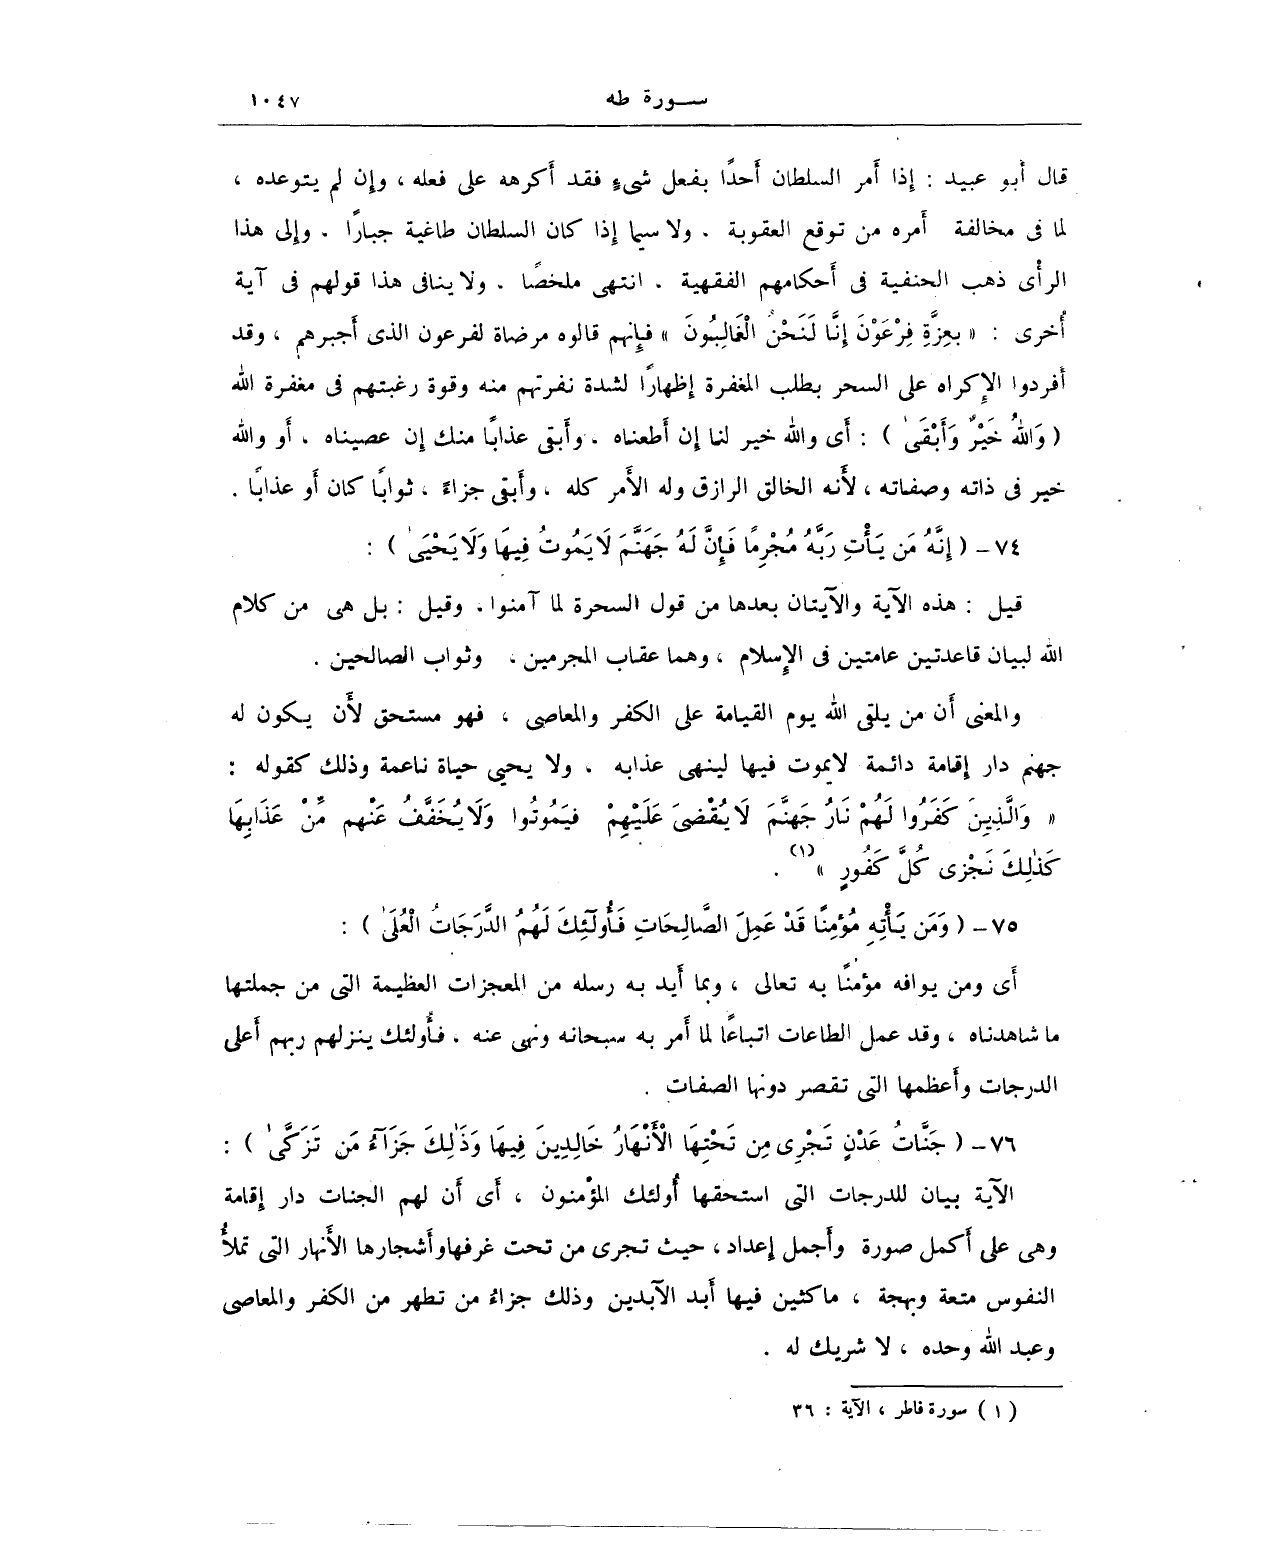 سورة طه ١٠٤٧
قال أبو عبيد : إذا أمر السلطان أحدًا بفعل شىءٍ فقد أكرهه على فعله ، وإن لم يتوعده ،
لما فى مخالفة أمره من توقع العقوبة . ولا سيما إذا كان السلطان طاغية جبارًا . وإلى هذا
الرأى ذهب الحنفية فى أحكامهم الفقهية . انتهى ملخصًا . ولا ينافى هذا قولهم فى آية
أُخرى : « بِعِزَّةِ فِرْعَوْنَ إِنَّا لَنَحْنُ الْغَالِبُونَ » فإنهم قالوه مرضاة لفرعون الذى أجبرهم ، وقد
أفردوا الإكراه على السحر بطلب المغفرة إظهارًا لشدة نفرتهم منه وقوة رغبتهم فى مغفرة الله
( وَاللهُ خَيْرٌ وَأَبْقَىٰ ) : أى والله خير لنا إن أطعناه . وأبقى عذابًا منك إن عصيناه . أو والله
خير فى ذاته وصفاته ، لأنه الخالق الرازق وله الأمر كله . وأبقى جزاءً ، ثوابًا كان أو عذابًا .
٧٤ - ( إِنَّهُ مَن يَأْتِ رَبَّهُ مُجْرِمًا فَإِنَّ لَهُ جَهَنَّمَ لَا يَمُوتُ فِيهَا وَلَا يَحْيَىٰ ) :
قيل : هذه الآية والآيتان بعدها من قول السحرة لما آمنوا . وقيل : بل هى من كلام
الله لبيان قاعدتين عامتين فى الإسلام ، وهما عقاب المجرمين . وثواب الصالحين .
والمعنى أن من يلقى الله يوم القيامة على الكفر والمعاصى ، فهو مستحق لأن يكون له
جهنم دار إقامة دائمة لايموت فيها لينهى عذابه . ولا يحيى حياة ناعمة وذلك كقوله :
« وَالَّذِينَ كَفَرُوا لَهُمْ نَارُ جَهَنَّمَ لَا يُقْضَىٰ عَلَيْهِمْ فَيَمُوتُوا وَلَا يُخَفَّفُ عَنْهم مِّنْ عَذَابِهَا
كَذَٰلِكَ نَجْزِى كُلَّ كَفُورٍ » (١) .
٧٥ - ( وَمَن يَأْتِهِ مُؤْمِنًا قَدْ عَمِلَ الصَّالِحَاتِ فَأُولَٰٓئِكَ لَهُمُ الدَّرَجَاتُ الْعُلَىٰ ) :
أى ومن يوافه مؤمنًا به تعالى ، وبما أيد به رسله من المعجزات العظيمة التى من جملتها
ما شاهدناه ، وقد عمل الطاعات اتباعًا لما أمر به سبحانه ونهى عنه . فأُولئك ينزلهم ربهم أعلى
الدرجات وأعظمها التى تقصر دونها الصفات .
٧٦ - ( جَنَّاتُ عَدْنٍ تَجْرِى مِن تَحْتِهَا الْأَنْهَارُ خَالِدِينَ فِيهَا وَذَٰلِكَ جَزَآءُ مَن تَزَكَّىٰ ) :
الآية بيان للدرجات التى استحقها أُولئك المؤمنون ، أى أن لهم الجنات دار إقامة
وهى على أكمل صورة وأجمل إعداد ، حيث تجرى من تحت غرفها وأشجارها الأنهار التى تملأُ
النفوس متعة وبهجة ، ماكثين فيها أبد الآبدين وذلك جزاءُ من تطهر من الكفر والمعاصى
وعبد الله وحده ، لا شريك له .
( ١ ) سورة فاطر ، الآية : ٣٦